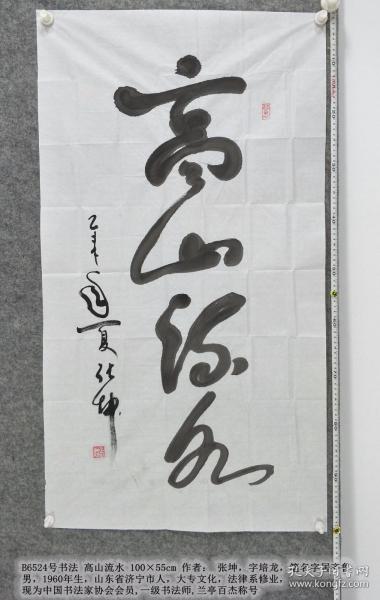 高山流水
B6524号书法 高山流水 100×55cm 作者： 张坤，字培龙，
男，1960年生，山东省济宁市人，大专文化，法律系修业，
现为中国书法家协会会员,一级书法师,兰亭百杰称号